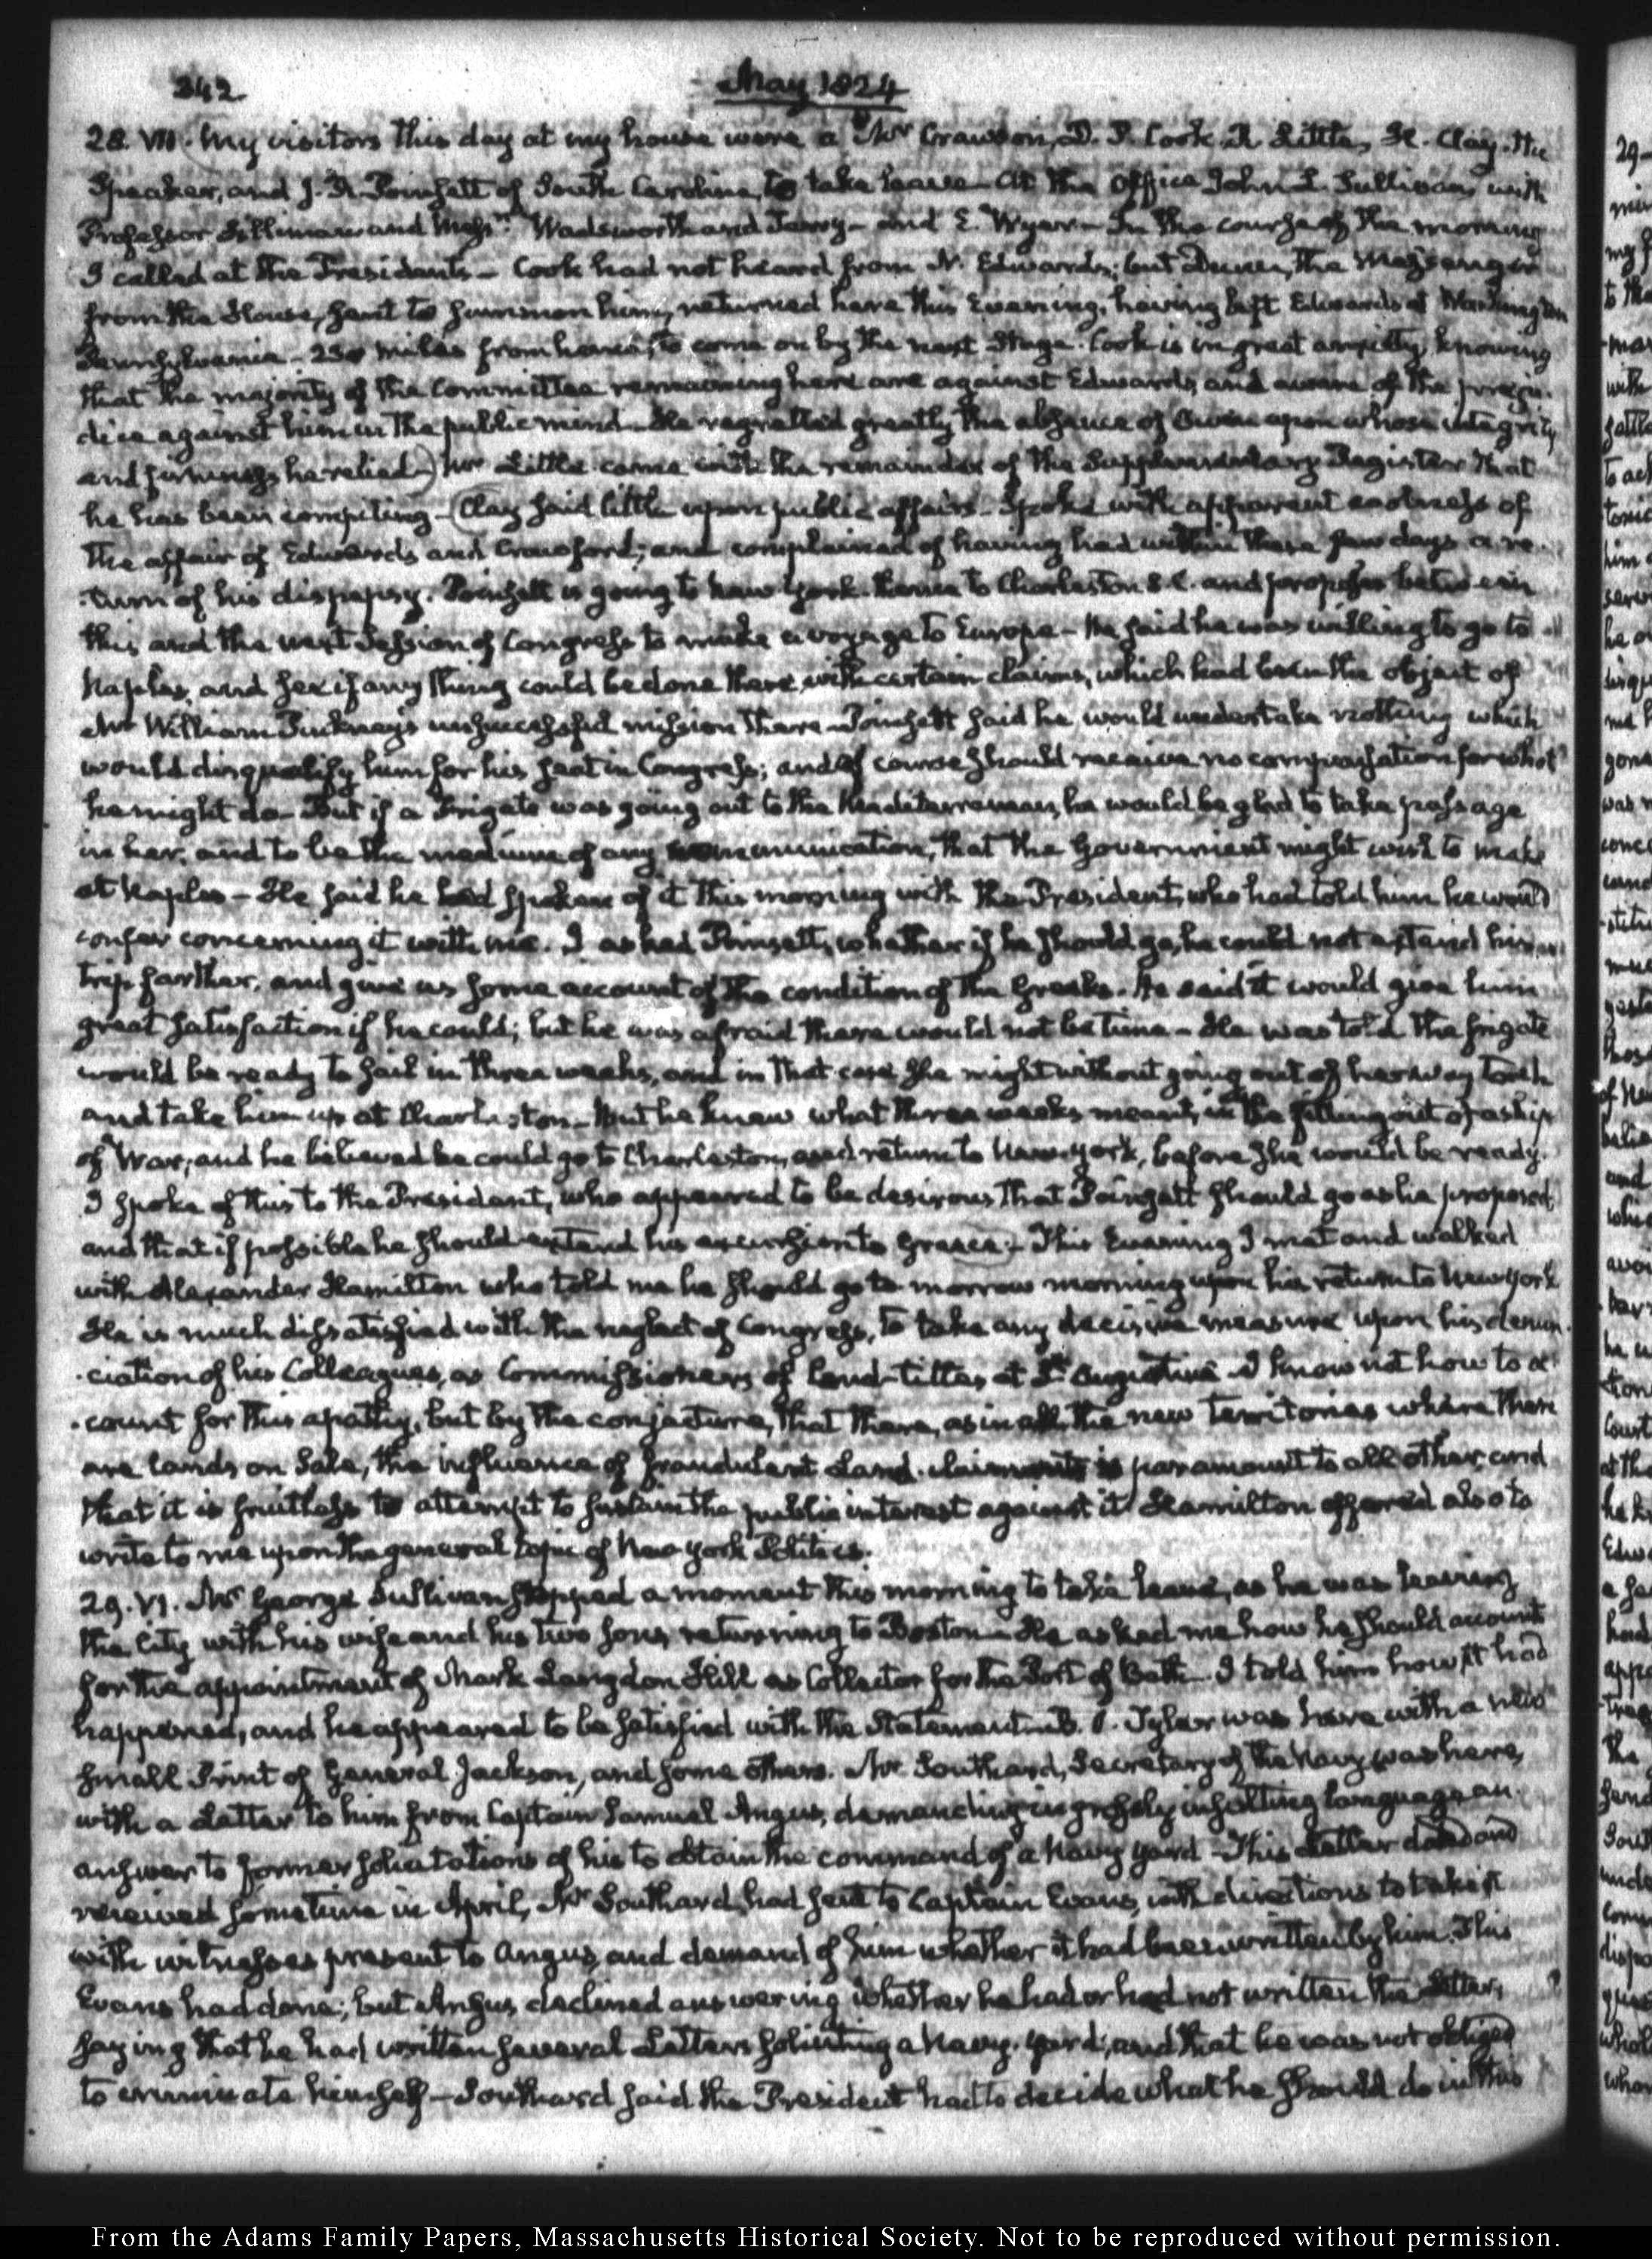 342
May 1824
28. VII. My visitors this day at my house were a Mr Crawson, D. P. Cook. R. Little, H. Clay. the
Speaker, and J. R. Poinsett of South Carolina, to take leave. At the Office John L. Sullivan, with
Professor Silliman and Messrs. Wadsworth and Terry — and E. Wyer — In the course of the morning
I called at the Presidents — Cook had not heard from N. Edwards; but Dunn, the Messenger
from the House, sent to summon him, returned here this Evening, having left Edwards at Washington
Pennsylvania — 230 miles from hence, to come on by the next Stage. Cook is in great anxiety, knowing
that the majority of the Committee remaining here are against Edwards, and aware of the preju-
dice against him in the public mind. He regretted greatly the absence of Owen upon whose integrity
and firmness he relied — ) Mr Little came with the remainder of the Supplementary Register that
he has been compiling — (Clay said little upon public affairs — Spoke with apparent coolness of
the affair of Edwards and Crawford; and complained of having had within these few days a re-
-turn of his dispepsy. Poinsett is going to New-York. thence to Charleston S.C. and proposes between
this and the next Session of Congress to make a voyage to Europe — He said he was willing to go to
Naples, and see if any thing could be done there, with certain claims, which had been the object of
Mr William Pinkney's unsuccessful mission there — Poinsett said he would undertake nothing which
would disqualify him for his seat in Congress; and of course should receive no compensation for what
he might do — But if a Frigate was going out to the Mediterranean, he would be glad to take passage
in her, and to be the medium of any communication, that the Government might wish to make
at Naples — He said he had spoken of it this morning with the President, who had told him he would
confer concerning it with me. I asked Poinsett, whether if he should go, he could not extend his
trip farther, and give us some account of the condition of the Greeks. He said it would give him
great satisfaction if he could; but he was afraid there would not be time — He was told the frigate
would be ready to sail in three weeks, and in that case she might without going out of her way touch
and take him up at Charleston — But he knew what three weeks meant, in the fitting out of a ship
of War; and he believed he could go to Charleston, and return to New-York, before she would be ready.
I spoke of this to the President, who appeared to be desirous that Poinsett should go as he proposed,
and that if possible he should extend his excursion to Greece; — This Evening I met and walked
with Alexander Hamilton who told me he should go to morrow morning upon his return to New York
He is much dissatisfied with the neglect of Congress, to take any decisive measure upon his denun-
-ciation of his Colleagues, as Commissioners of Land-titles at St. Augustine. I know not how to ac-
-count for this apathy, but by the conjecture, that there, as in all the new Territories where there
are lands on Sale, the influence of fraudulent Land-claimants is paramount to all other, and
that it is fruitless to attempt to sustain the public interest against it. Hamilton offered also to
write to me upon the general topic of New York Politics.
29. VI. Mr George Sullivan stopped a moment this morning to take leave, as he was leaving
the City with his wife and his two sons, returning to Boston — He asked me how he should account
for the appointment of Mark Langdon Hill as Collector for the Port of Bath. I told him how it had
happened, and he appeared to be satisfied with the statement — B. O. Tyler was here with a new
small Print of General Jackson, and some others. Mr Southard, Secretary of the Navy, was here,
with a Letter to him from Captain Samuel Angus, demanding in grossly insulting language an
answer to former solicitations of his to obtain the command of a Navy yard — This Letter dated and
received sometime in April, Mr Southard had sent to Captain Evans, with directions to take it
with witnesses present to Angus, and demand of him whether it had been written by him. This
Evans had done; but Angus declined answering whether he had or had not written the Letter,
saying that he had written several Letters soliciting a Navy-Yard; and that he was not obliged
to criminate himself — Southard said the President had to decide what he should do in this
From the Adams Family Papers, Massachusetts Historical Society. Not to be reproduced without permission.